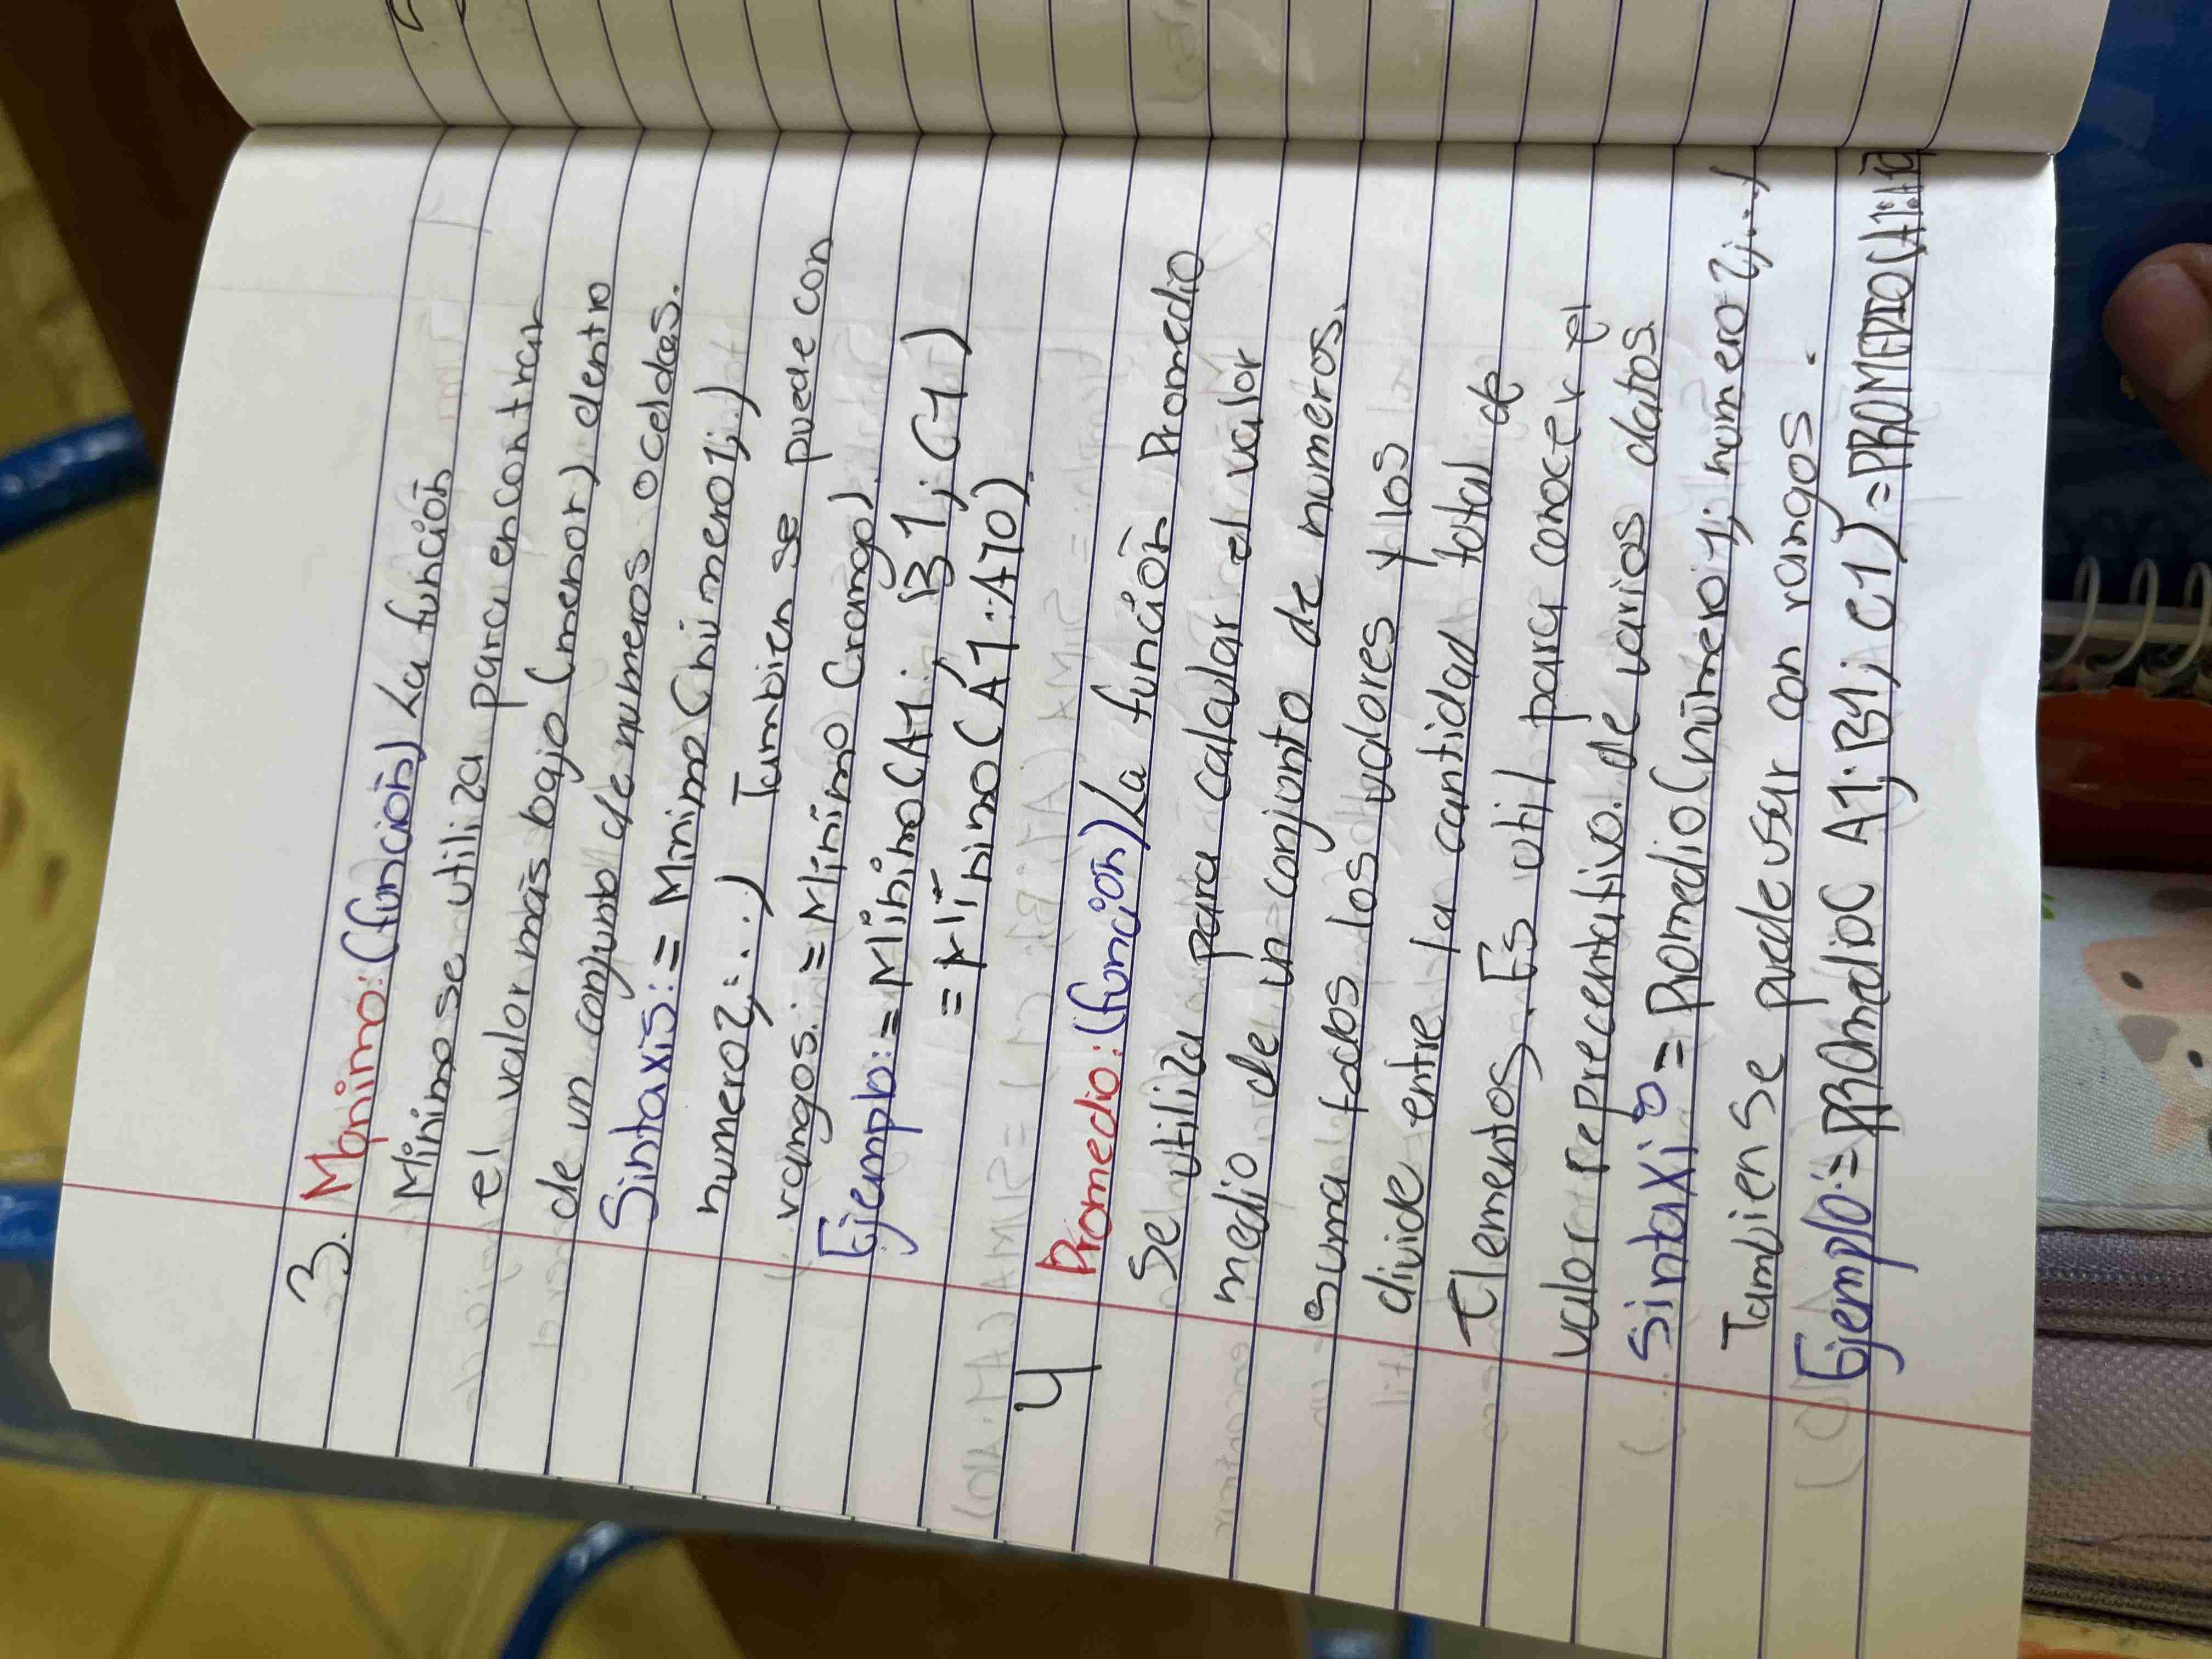 3. Mínimo: (función) La función
Mínimo se utiliza para encontrar
el valor más bajo (menor) dentro
de un conjunto de numeros o celdas.
Sintaxis: = Mínimo (número1;)
numero2;...) Tambien se puede con
rangos: = Mínimo (rango)
Ejemplo: = Mínimo (A1; B1; C1)
= Mínimo (A1:A10)
4 Promedio: (función) La función Promedio
Se utiliza para calcular el valor
medio de un conjunto de numeros.
Suma todos los valores y los
divide entre la cantidad total de
Elementos. Es util para conocer el
valor reprecentativo de varios datos.
Sintaxis = Promedio (número1; numero2;...)
Tambien se puede usar con rangos.
Ejemplo: = PROmedio( A1; B1; C1) = PROMEDIO(A1:A10)